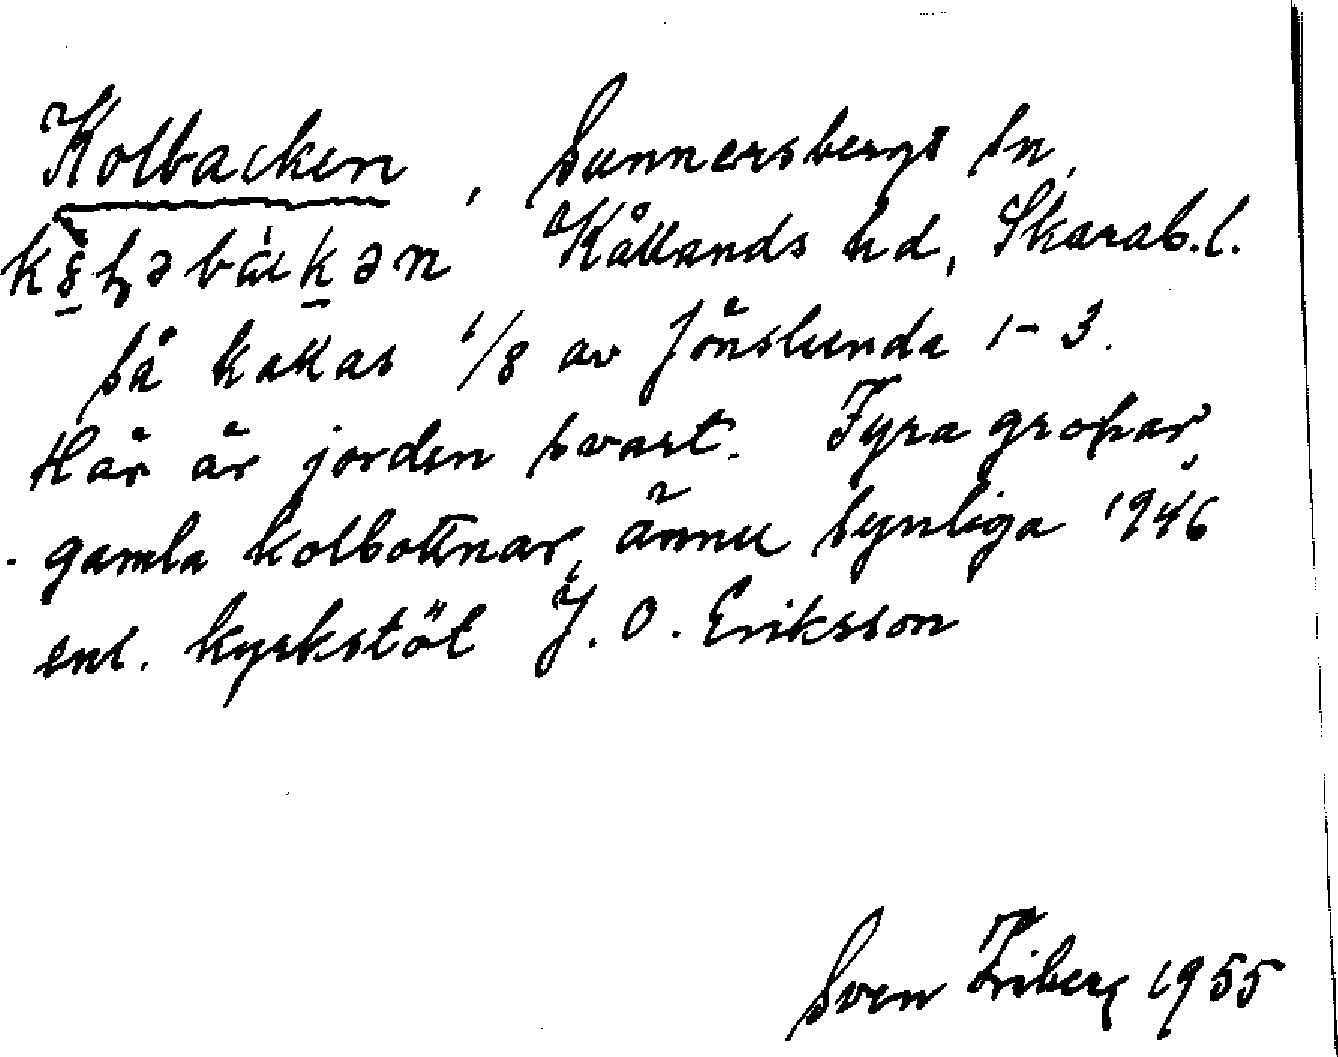 Kolbacken, Sunnersbergs sn,
Kållands hd, Skarab.l.
Så kallas 1/8 av Jönslunda 1-3.
Här är jorden svart. Fyra gropar,
gamla kolbottnar, ännu synliga 1946
enl. kyrkstöt J. O. Eriksson
Sven Friberg 1955